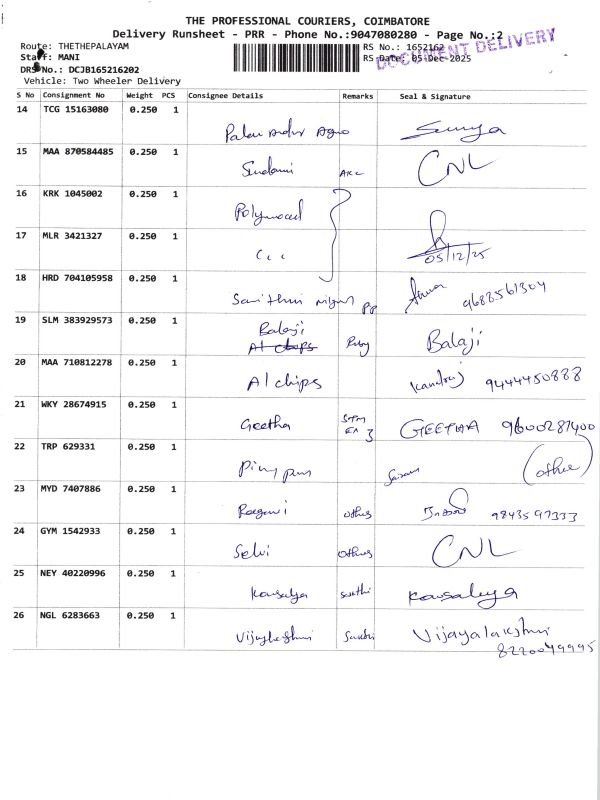 THE PROFESSIONAL COURIERS, COIMBATORE
Delivery Runsheet - PRR - Phone No.:9047080280 - Page No.:2
Route: THETHEPALAYAM RS No.: 1652162
DOCUMENT DELIVERY
Staff: MANI RS Date: 05-Dec-2025
DRS No.: DCJB165216202
Vehicle: Two Wheeler Delivery
S No Consignment No Weight PCS Consignee Details Remarks Seal & Signature
14 TCG 15163080 0.250 1
15 MAA 870584485 0.250 1
CNL
16 KRK 1045002 0.250 1
17 MLR 3421327 0.250 1
05/12/25
18 HRD 704105958 0.250 1
9688561304
19 SLM 383929573 0.250 1
Balaji Balaji
20 MAA 710812278 0.250 1
A1 chips 9444450888
21 WKY 28674915 0.250 1
Geetha GEETHA 9600287400
22 TRP 629331 0.250 1
23 MYD 7407886 0.250 1
9843597333
24 GYM 1542933 0.250 1
Selvi CNL
25 NEY 40220996 0.250 1
Kousalya Kousalya
26 NGL 6283663 0.250 1
Vijayalakshmi
8220049995